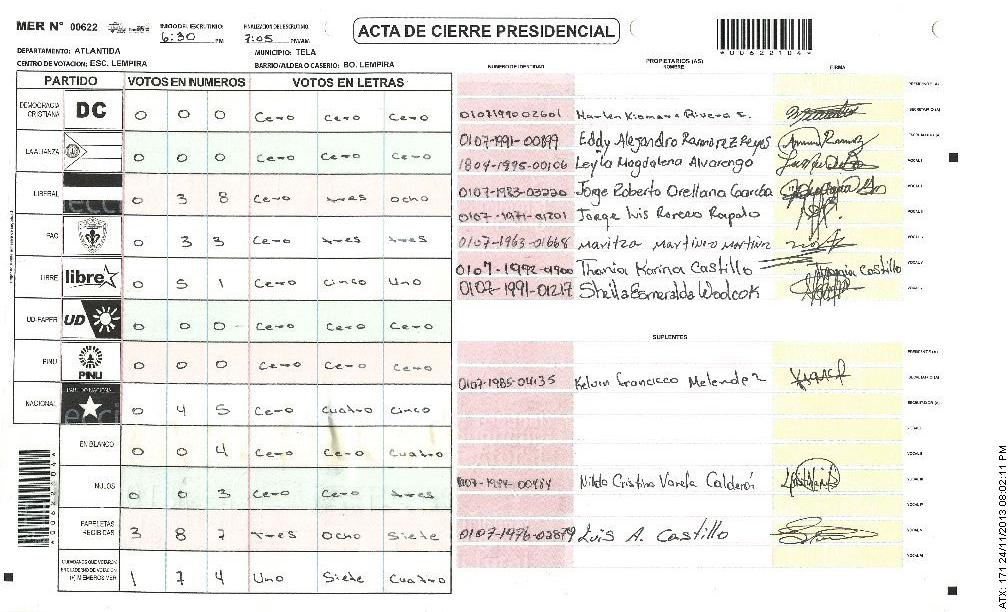 MER N° 00622 INICIO DEL ESCRUTINIO: 6:30 PM FINALIZACION DEL ESCRUTINIO: 7:05 PM/AM ACTA DE CIERRE PRESIDENCIAL
*00622104*
DEPARTAMENTO: ATLANTIDA MUNICIPIO: TELA
CENTRO DE VOTACION: ESC. LEMPIRA BARRIO/ALDEA O CASERIO: BO. LEMPIRA
PARTIDO VOTOS EN NUMEROS VOTOS EN LETRAS
DEMOCRACIA CRISTIANA DC 0 0 0 Cero Cero Cero
LA ALIANZA 0 0 0 Cero Cero Cero
LIBERAL 0 3 8 Cero tres ocho
PAC 0 3 3 Cero tres tres
LIBRE libre 0 5 1 Cero cinco Uno
UD-FAPER UD 0 0 0 Cero Cero Cero
PINU PINU 0 0 0 Cero Cero Cero
NACIONAL PARTIDO NACIONAL 0 4 5 Cero cuatro cinco
EN BLANCO 0 0 4 Cero Cero Cuatro
NULOS 0 0 3 Cero Cero tres
PAPELETAS RECIBIDAS 3 8 7 tres ocho siete
CIUDADANOS QUE VOTARON EN CUADERNO DE VOTACION (+) MIEMBROS MER 1 7 4 Uno Siete Cuatro
PROPIETARIOS (AS)
NUMERO DE IDENTIDAD NOMBRE FIRMA
PRESIDENTE (A)
0107199002601 Marlen Xiomara Rivera SECRETARIO (A)
0107-1991-00899 Eddy Alejandro Ramirez Reyes ESCRUTADOR (A)
1804-1995-00106 Leyla Magdalena Alvarengo VOCAL I
0107-1983-03220 Jorge Roberto Orellana Garcia
0107-1971-01201 Jorge Luis Romero Rapalo
0107-1963-01668 Maritza Martinez Martinez
0107-1992-01900 Thania Karina Castillo
0107-1991-01217 Sheila Esmeralda Woolcok
SUPLENTES
PRESIDENTE (A)
0107-1985-04135 Kelvin Francisco Melendez SECRETARIO (A)
ESCRUTADOR (A)
VOCAL I
VOCAL II
Nilda Cristina Varela Calderón
0107-1976-02879 Luis A. Castillo
*00622104*
ATX: 171 24/11/2013 08:02:11 PM